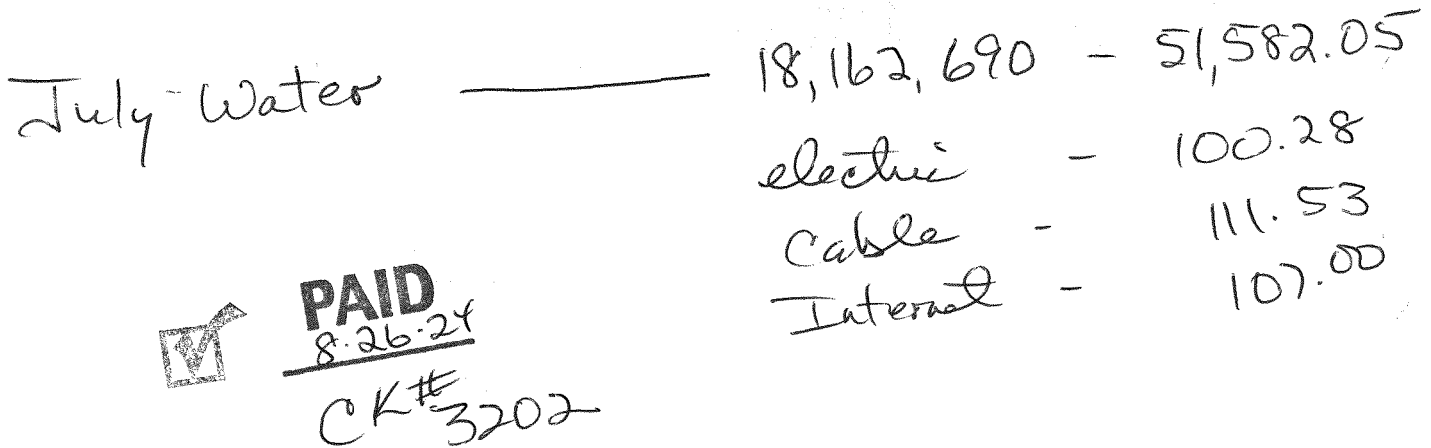 July - Water — 18,162,690 - 51,582.05
electric - 100.28
Cable - 111.53
Internet - 107.00
PAID
8.26.24
CK# 3202